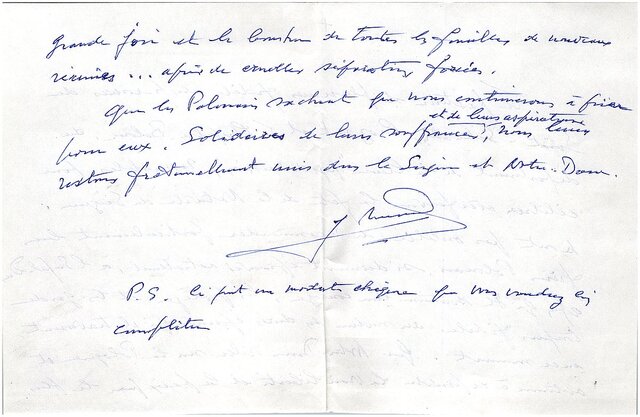 grande joie et le bonheur de toutes les familles de nouveau
réunies... après de cruelles séparations forcées.
Que les Polonais sachent que nous continuerons à prier
et de leurs aspirations
pour eux. Solidaires de leurs souffrances, nous leur
restons fraternellement unis dans le Seigneur et Notre-Dame.
P.S. Ci-joint un modeste chèque que vous voudrez bien
compléter